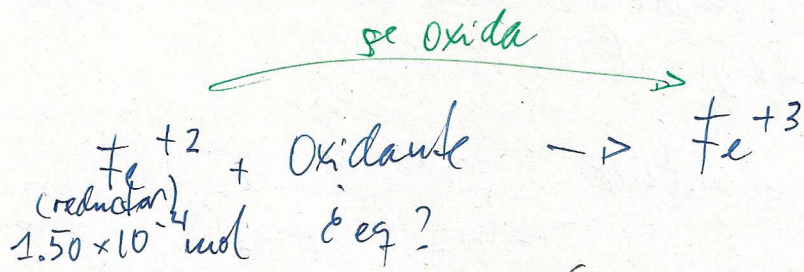 se oxida
Fe+2 + Oxidante -> Fe+3
(reductor)
1.50×10-4 mol ¿eq?